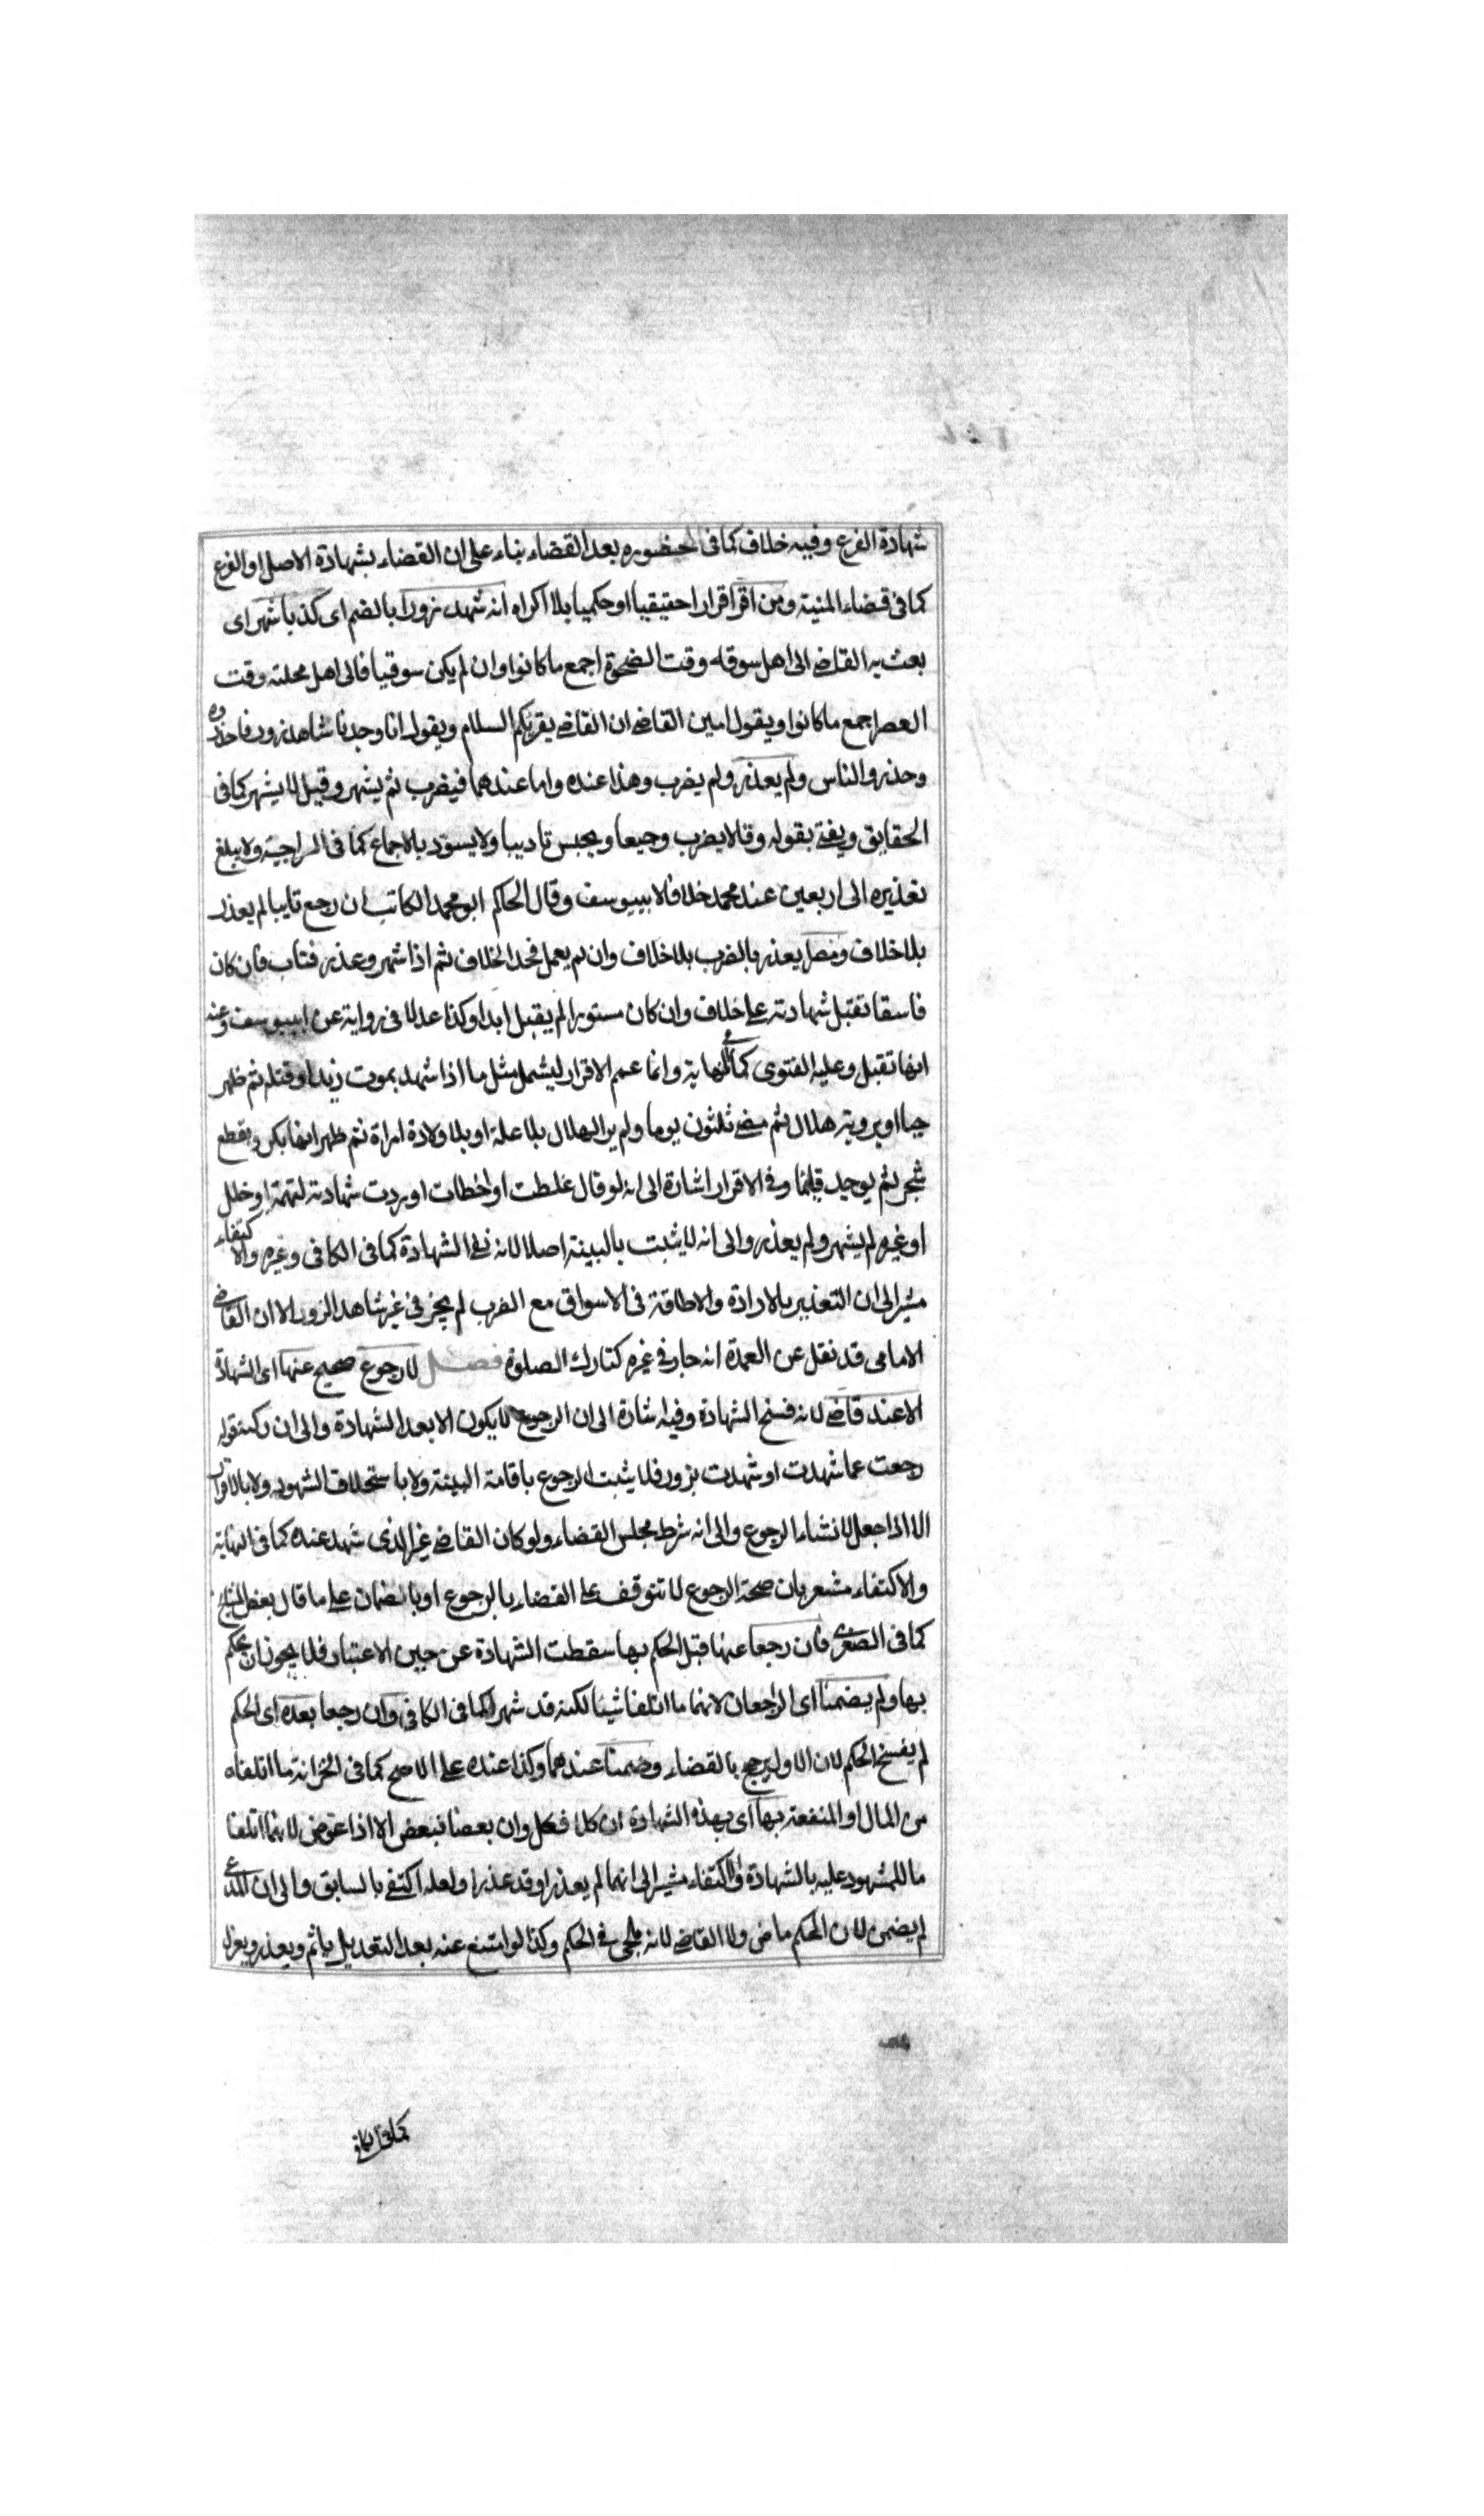 شهادة الفرع وفيه خلاف كما فى حضوره بعد القضاء بناء على ان القضاء بشهادة الاصل او الفرع
كما فى قضاء المنية ومن اقر اقرارا حقيقيا او حكميا بلا اكراه انه شهد زورا بالضم اى كذبا شهر اى
بعث به القاضى الى اهل سوقه وقت الضحوة اجمع ما كانوا وان لم يكن سوقيا فالى اهل محلته وقت
العصر اجمع ما كانوا ويقول امين القاضى ان القاضى يقرئكم السلام ويقول انا وجدنا شاهد زور فاحذروه
وحذروا الناس ولم يعذر ولم يضرب وهذا عنده واما عندهما فيضرب ثم يشهر وقيل لا يشهر كما فى
الحقايق ويفتى بقوله وقالا يضرب وجيعا ويحبس تاديبا ولا يسود بالاجماع كما فى السراجية ولا يبلغ
تعذيره الى اربعين عند محمد خلافا لابييوسف وقال الحاكم ابو محمد الكاتب ان رجع تايبا لم يعذر
بلا خلاف ومصر يعذر بالضرب بلا خلاف وان لم يعمل فحد الخلاف ثم اذا شهر وعذر فتاب فان كان
فاسقا تقبل شهادته على خلاف وان كان مستورا لم يقبل ابدا وكذا عدلا فى رواية عن ابييوسف وعنه
انها تقبل وعليه الفتوى كما فى النهاية وانما عمم الاقرار ليشمل مثل ما اذا شهد بموت زيد او قتله ثم ظهر
حيا او بروية هلال ثم مضى ثلثون يوما ولم ير الهلال بلا علة او بلا ولادة امراة ثم ظهر انها بكر وبقطع
شجر ثم يوجد قائما وفى الاقرار اشارة الى انه لو قال غلطت او اخطات او ردت شهادته لتهمة او خلل
او غيره لم يشهر ولم يعذر والى انه لا يثبت بالبينة اصلا لانه نفى الشهادة كما فى الكافى وغيره والاكتفاء
مشير الى ان التعذير بالادارة والاطافة فى الاسواق مع الضرب لم يجز فى غير شاهد الزور الا ان القاضى
الامامى قد نقل عن العمدة انه جاز فى غيره كتارك الصلوة فصل لا رجوع صحيح عنها اى الشهادة
الا عند قاضى لانه فسخ الشهادة وفيه اشارة الى ان الرجوع لا يكون الا بعد الشهادة والى ان ركنه قوله
رجعت عما شهدت او شهدت بزور فلا يثبت الرجوع باقامة البينة ولا باستحلاف الشهود ولا بالاقرار
الا اذا جعل لانشاء الرجوع والى انه شرط مجلس القضاء ولو كان القاضى غير الذى شهد عنده كما فى النهاية
والاكتفاء مشعر بان صحة الرجوع لا تتوقف على القضاء بالرجوع او بالضمان على ما قال بعض المشايخ
كما فى الصغرى فان رجعا عنها قبل الحكم بها سقطت الشهادة عن حيز الاعتبار فلا يجوز ان يحكم
بها ولم يضمنا اى الراجعان لانهما ما اتلفا شيئا لكنه قد شهر كما فى الكافى وان رجعا بعده اى الحكم
لم يفسخ الحكم لان الاول يرجح بالقضاء وضمنا عندهما وكذا عنده على الاصح كما فى الخزانة ما اتلفاه
من المال او المنفعة بها اى بهذه الشهادة ان كلا فكل وان بعضا فبعض الا اذا عوض لانهما اتلفا
مال المشهود عليه بالشهادة والاكتفاء مشير الى انهما لم يعذرا وقد عذرا ولعله اكتفى بالسابق والى ان المدعى
لم يضمن لان الحكم ماض ولا القاضى لانه ملجى فى الحكم وكذا لو امتنع عنه بعد التعديل ياثم ويعذر ويعزل
كما فى الكافى